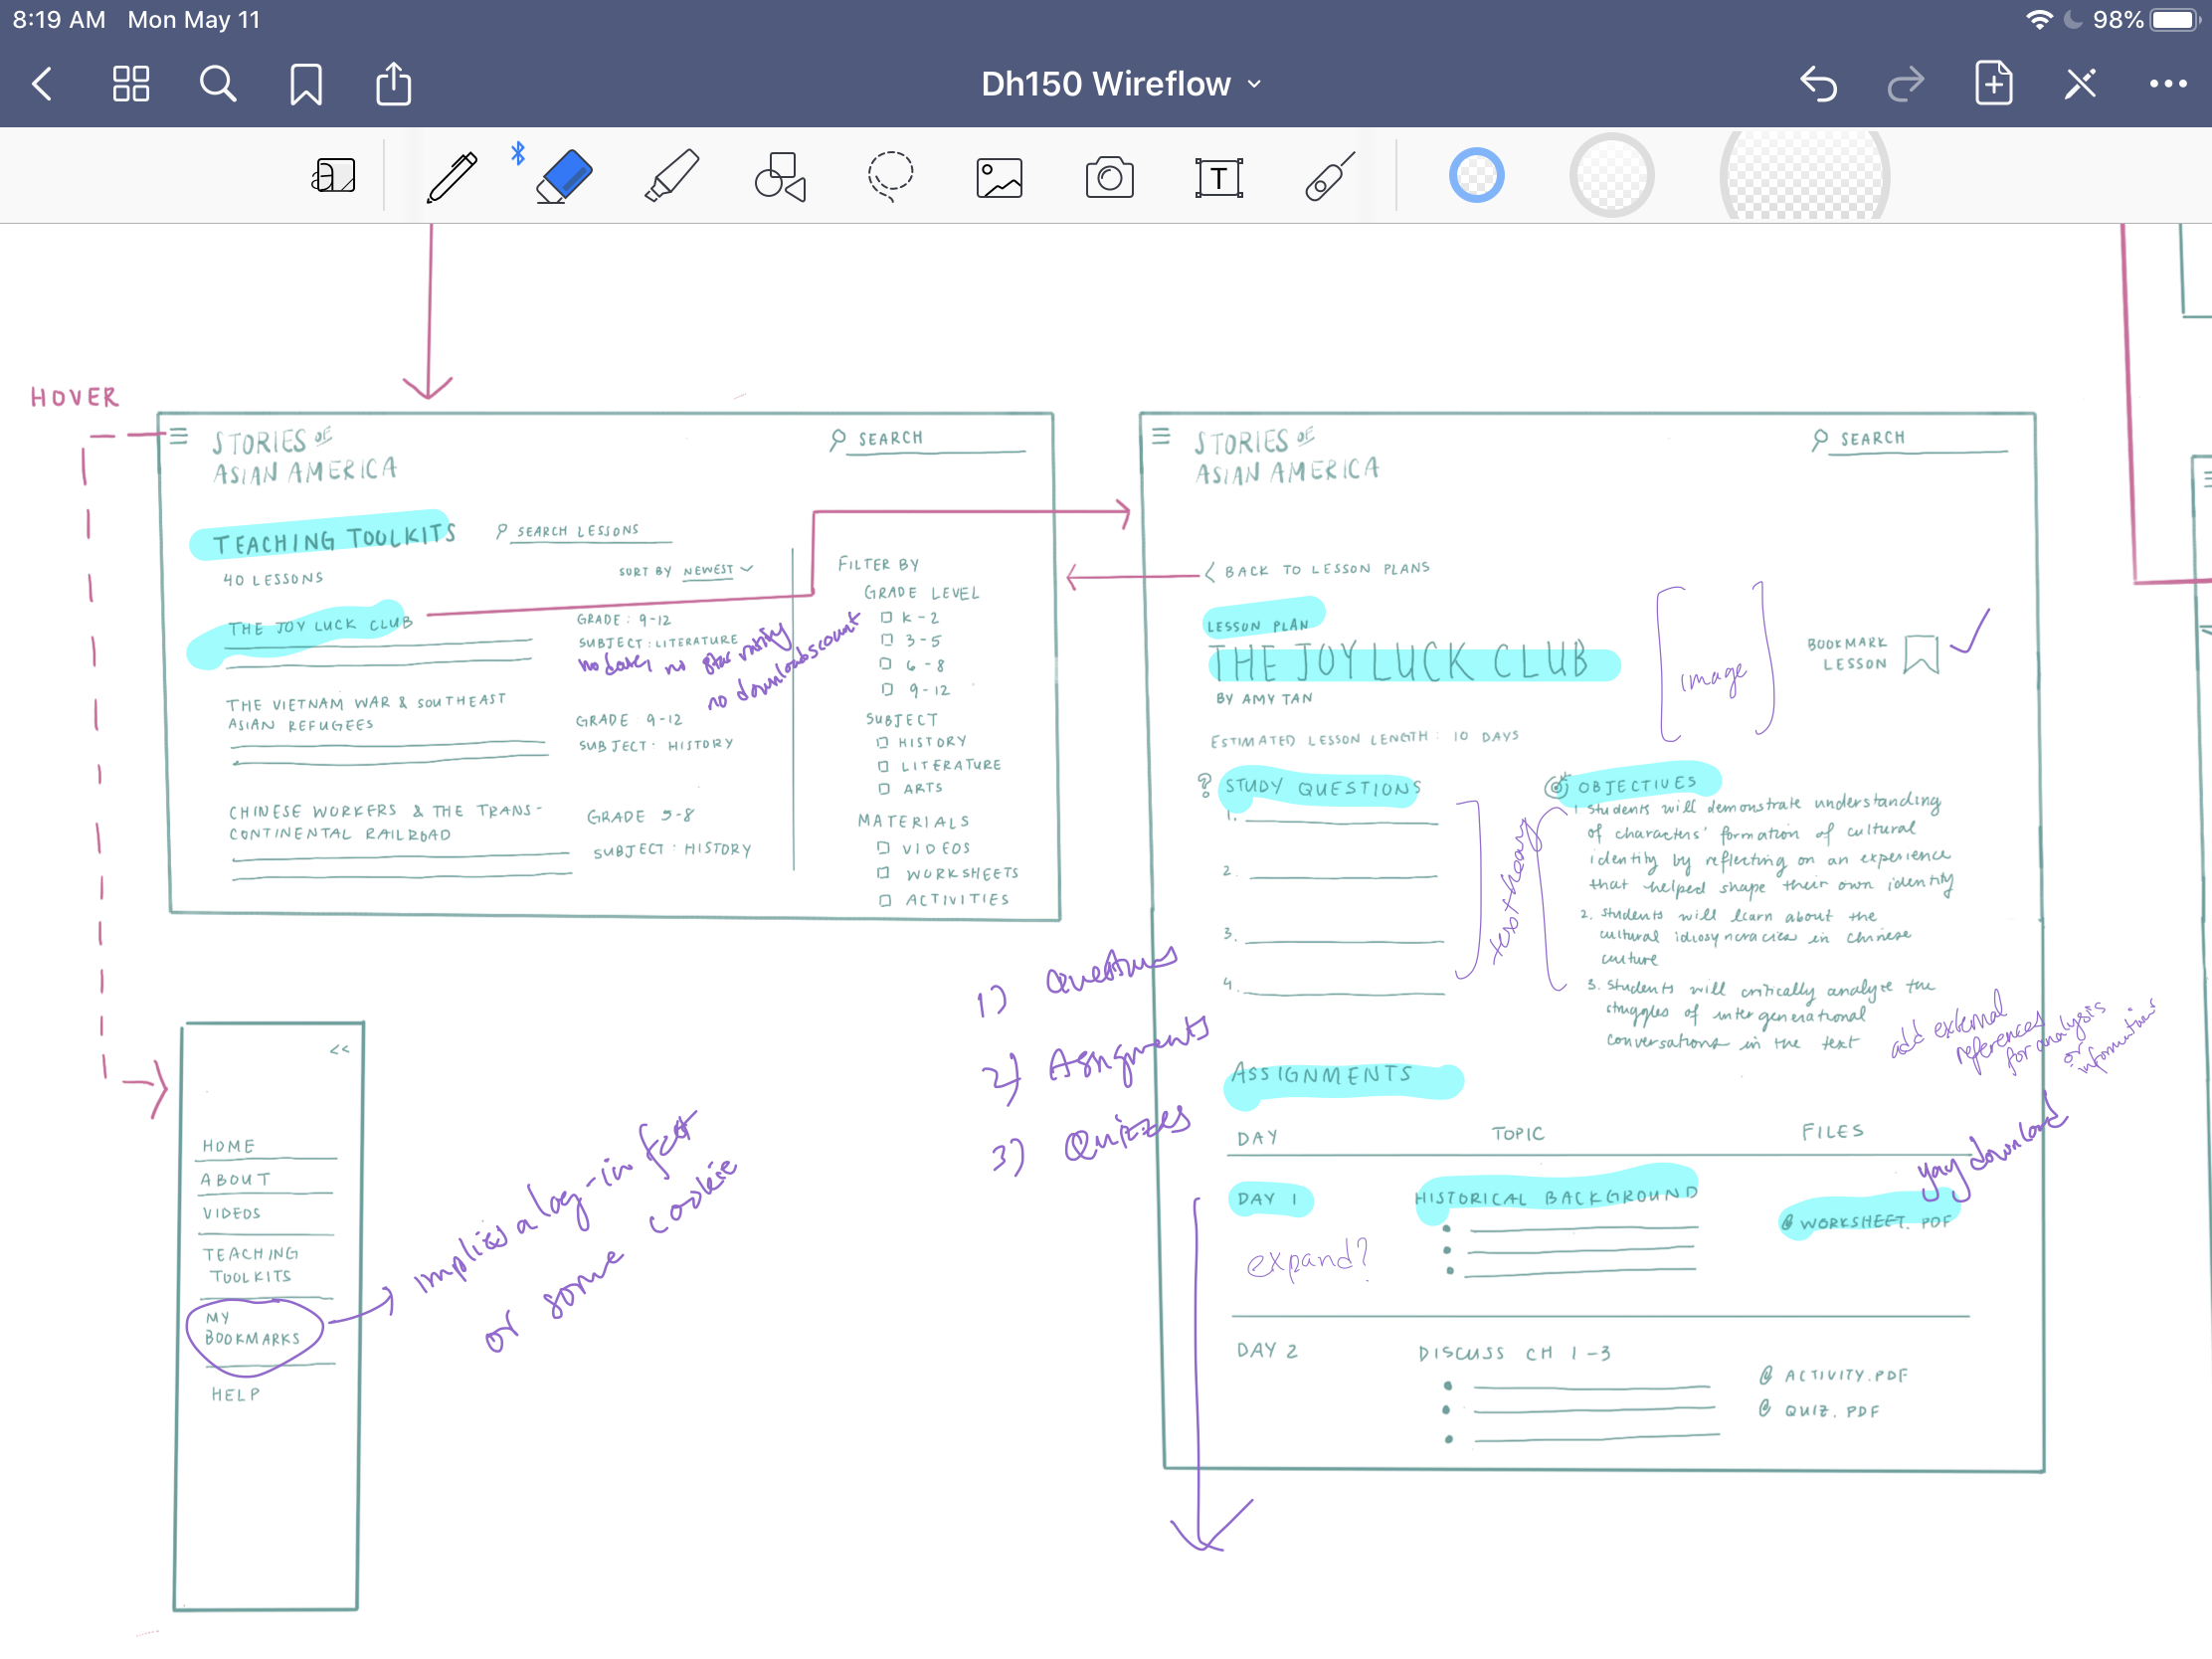 8:19 AM Mon May 11
98%
Dh150 Wireflow
T
HOVER
STORIES OF
ASIAN AMERICA
SEARCH
TEACHING TOOLKITS
SEARCH LESSONS
40 LESSONS
SORT BY NEWEST
THE JOY LUCK CLUB
GRADE: 9-12
SUBJECT: LITERATURE
no dates no star rating
no downloads count
THE VIETNAM WAR & SOUTHEAST
ASIAN REFUGEES
GRADE 9-12
SUBJECT: HISTORY
CHINESE WORKERS & THE TRANS-
CONTINENTAL RAILROAD
GRADE 5-8
SUBJECT: HISTORY
FILTER BY
GRADE LEVEL
K-2
3-5
6-8
9-12
SUBJECT
HISTORY
LITERATURE
ARTS
MATERIALS
VIDEOS
WORKSHEETS
ACTIVITIES
<<
HOME
ABOUT
VIDEOS
TEACHING
TOOLKITS
MY
BOOKMARKS
HELP
implies a log-in feat
or some cookie
1) Questions
2) Assignments
3) Quizzes
STORIES OF
ASIAN AMERICA
SEARCH
< BACK TO LESSON PLANS
LESSON PLAN
THE JOY LUCK CLUB
BY AMY TAN
image
BOOKMARK
LESSON
ESTIMATED LESSON LENGTH: 10 DAYS
? STUDY QUESTIONS
1.
2.
3.
4.
text heavy
OBJECTIVES
1. Students will demonstrate understanding
of characters' formation of cultural
identity by reflecting on an experience
that helped shape their own identity
2. Students will learn about the
cultural idiosyncracies in Chinese
culture
3. Students will critically analyze the
struggles of intergenerational
conversations in the text
add external
references
for analysis
or
informations
ASSIGNMENTS
DAY TOPIC FILES
yay download
DAY 1 HISTORICAL BACKGROUND WORKSHEET.PDF
expand?
DAY 2 DISCUSS CH 1-3
ACTIVITY.PDF
QUIZ.PDF